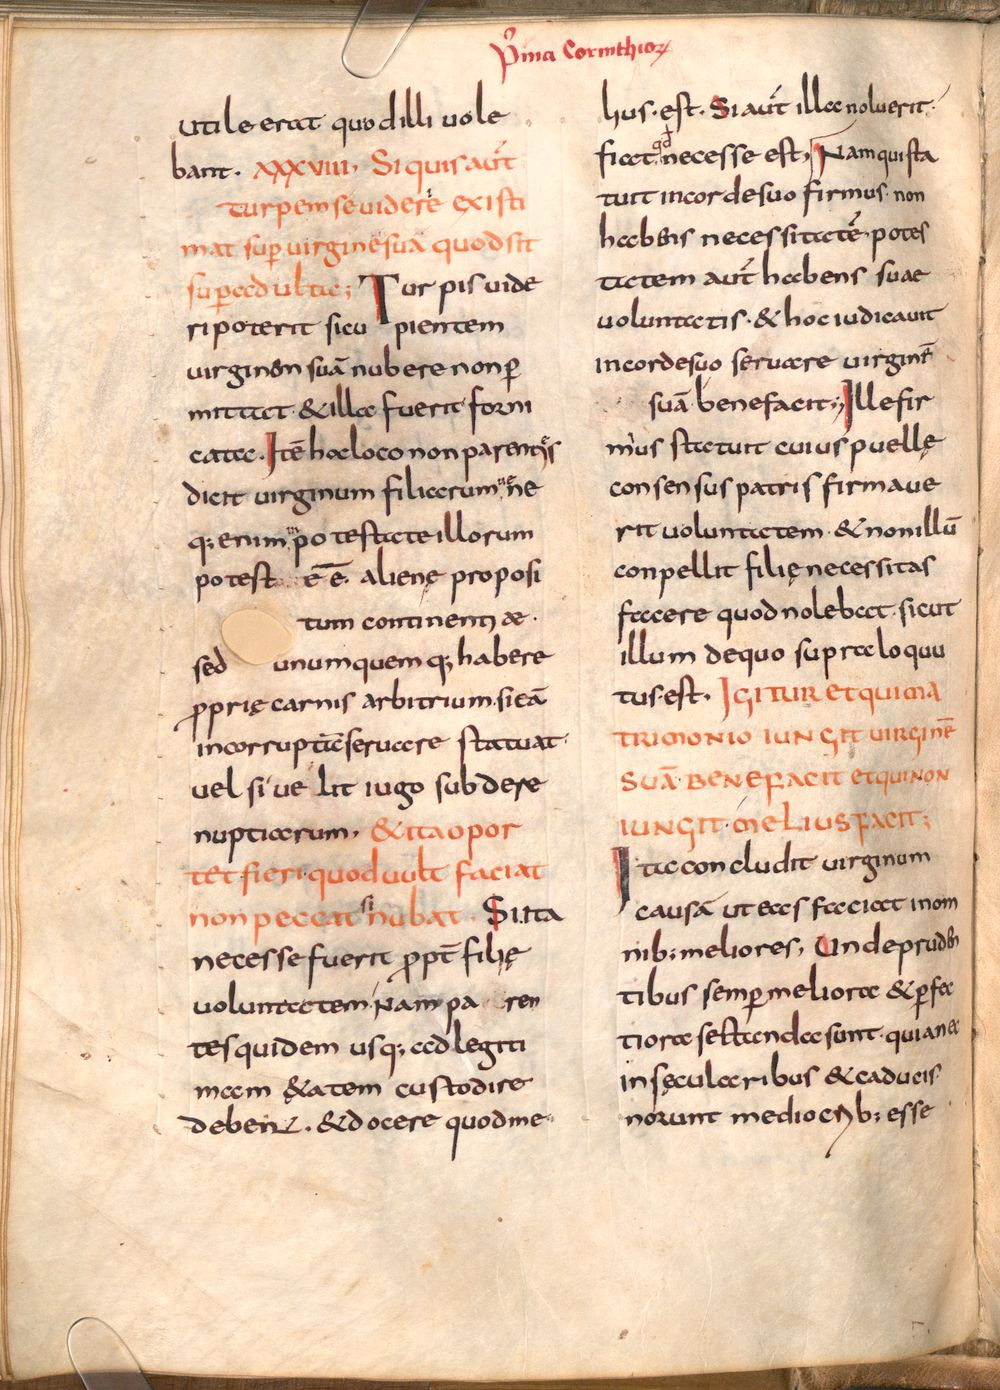 P̊ma Corinthioꝝ
utile erat quod illi uole
bant. XXXVIII, Si quis aut̄
turpem se uidere existi
mat sup̱ uirginē suā quod sit
sup̱adulta; Turpis uide
ri poterit si cu pientem
uirginen suā nubere non p̱
mittat & illa fuerit forni
cata. Itē hoc loco non parentes
dicit uirginum filiarum ne
q; enim in potestate illorum
potest eē alienę proposi
tum continentiae.
sed unumquemq; habere
ꝓprię carnis arbitrium. sieā
incorruptā seruare statuat
uel si uelit iugo subdere
nuptiarum, & ita opor
tet fieri quod uult faciat
non peccat si nubat. Si ita
necesse fuerit ꝓpt̄ filię
voluntatem. Nam pa ren
tes quidem usq; ad legiti
mam &atem custodire
debent. & docere quod me
lius. est. Si aut̄ illa noluerit.
fiat qd necesse est, Nam qui sta
tuit in corde suo firmus non
habens necessitatē. potes
tatem aut̄ habens suae
uoluntatis. & hoc iudicauit
in corde suo seruare uirginē
suā bene facit; Ille fir
mus statuit cuius puellę
consensus patris firmaue
rit uoluntatem. & non illū
conpellit filię necessitas
facere quod nolebat. sicut
illum de quo supra loquu
tus. est. Igitur et qui ma
trimonio iungit uirginē
suā. bene facit et qui non
iungit melius facit;
Ita concludit uirginum
causā ut eas faciat in om
nib; meliores, Unde pruden
tibus semp̱ meliora & p̱fec
tiora sectanda sunt. quia nec
in sęcularibus & caducis
norunt mediocrib; esse